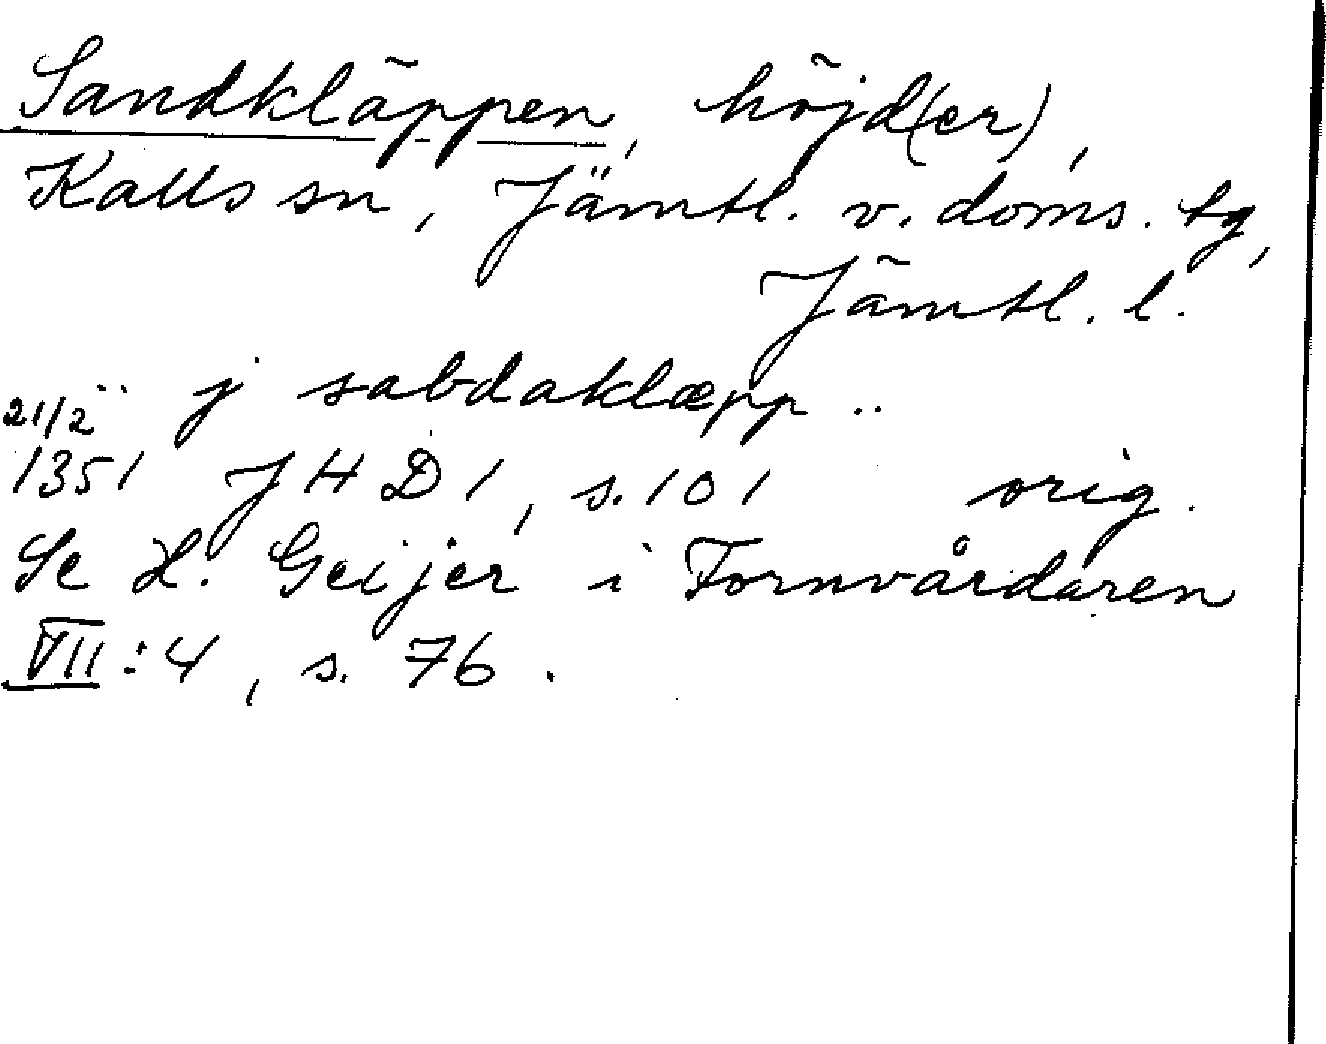 Sandkläppen, höjd(er),
Kalls sn, Jämtl. v. doms. tg,
Jämtl. l.
.. j sabdaklæpp ..
21/2
1351 JHD 1, s. 101 orig.
Se H. Geijer i Fornvårdaren
VII:4, s. 76.